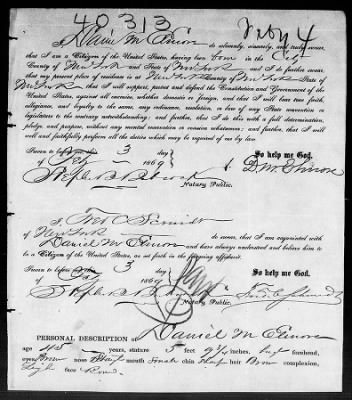 40313
Feby 4
I, Daniel M Elmore do solemnly, sincerely, and truly swear,
that I am a Citizen of the United States, having been born in the City
County of New York State of New York and I do further swear
that my present place of residence is at New York County of New York State of
New York that I will support, protect and defend the Constitution and Government of the
United States, against all enemies, whether domestic or foreign, and that I will bear true faith,
allegiance, and loyalty to the same, any ordinance, resolution, or law of any State convention or
legislature to the contrary notwithstanding; and further, that I do this with a full determination,
pledge, and purpose, without any mental reservation or evasion whatsoever; and further, that I will
well and faithfully perform all the duties which may be required of me by law.
So help me God.
Sworn to before me 3 day
of Feb 1869
D. M. Elmore
Notary Public.
I, Fred C Schmidt
of New York do swear, that I am acquainted with
Daniel M Elmore and have always understood and believe him to
be a Citizen of the United States, as set forth in the foregoing affidavit.
Sworn to before 3 day
of 1869
So help me God.
Fred. C. Schmidt
Notary Public.
PERSONAL DESCRIPTION OF Daniel M Elmore
age 45 years, stature 5 feet 9 3/4 inches, high forehead,
eyes Brown nose mouth Small chin Sharp hair Brown complexion,
face Round.